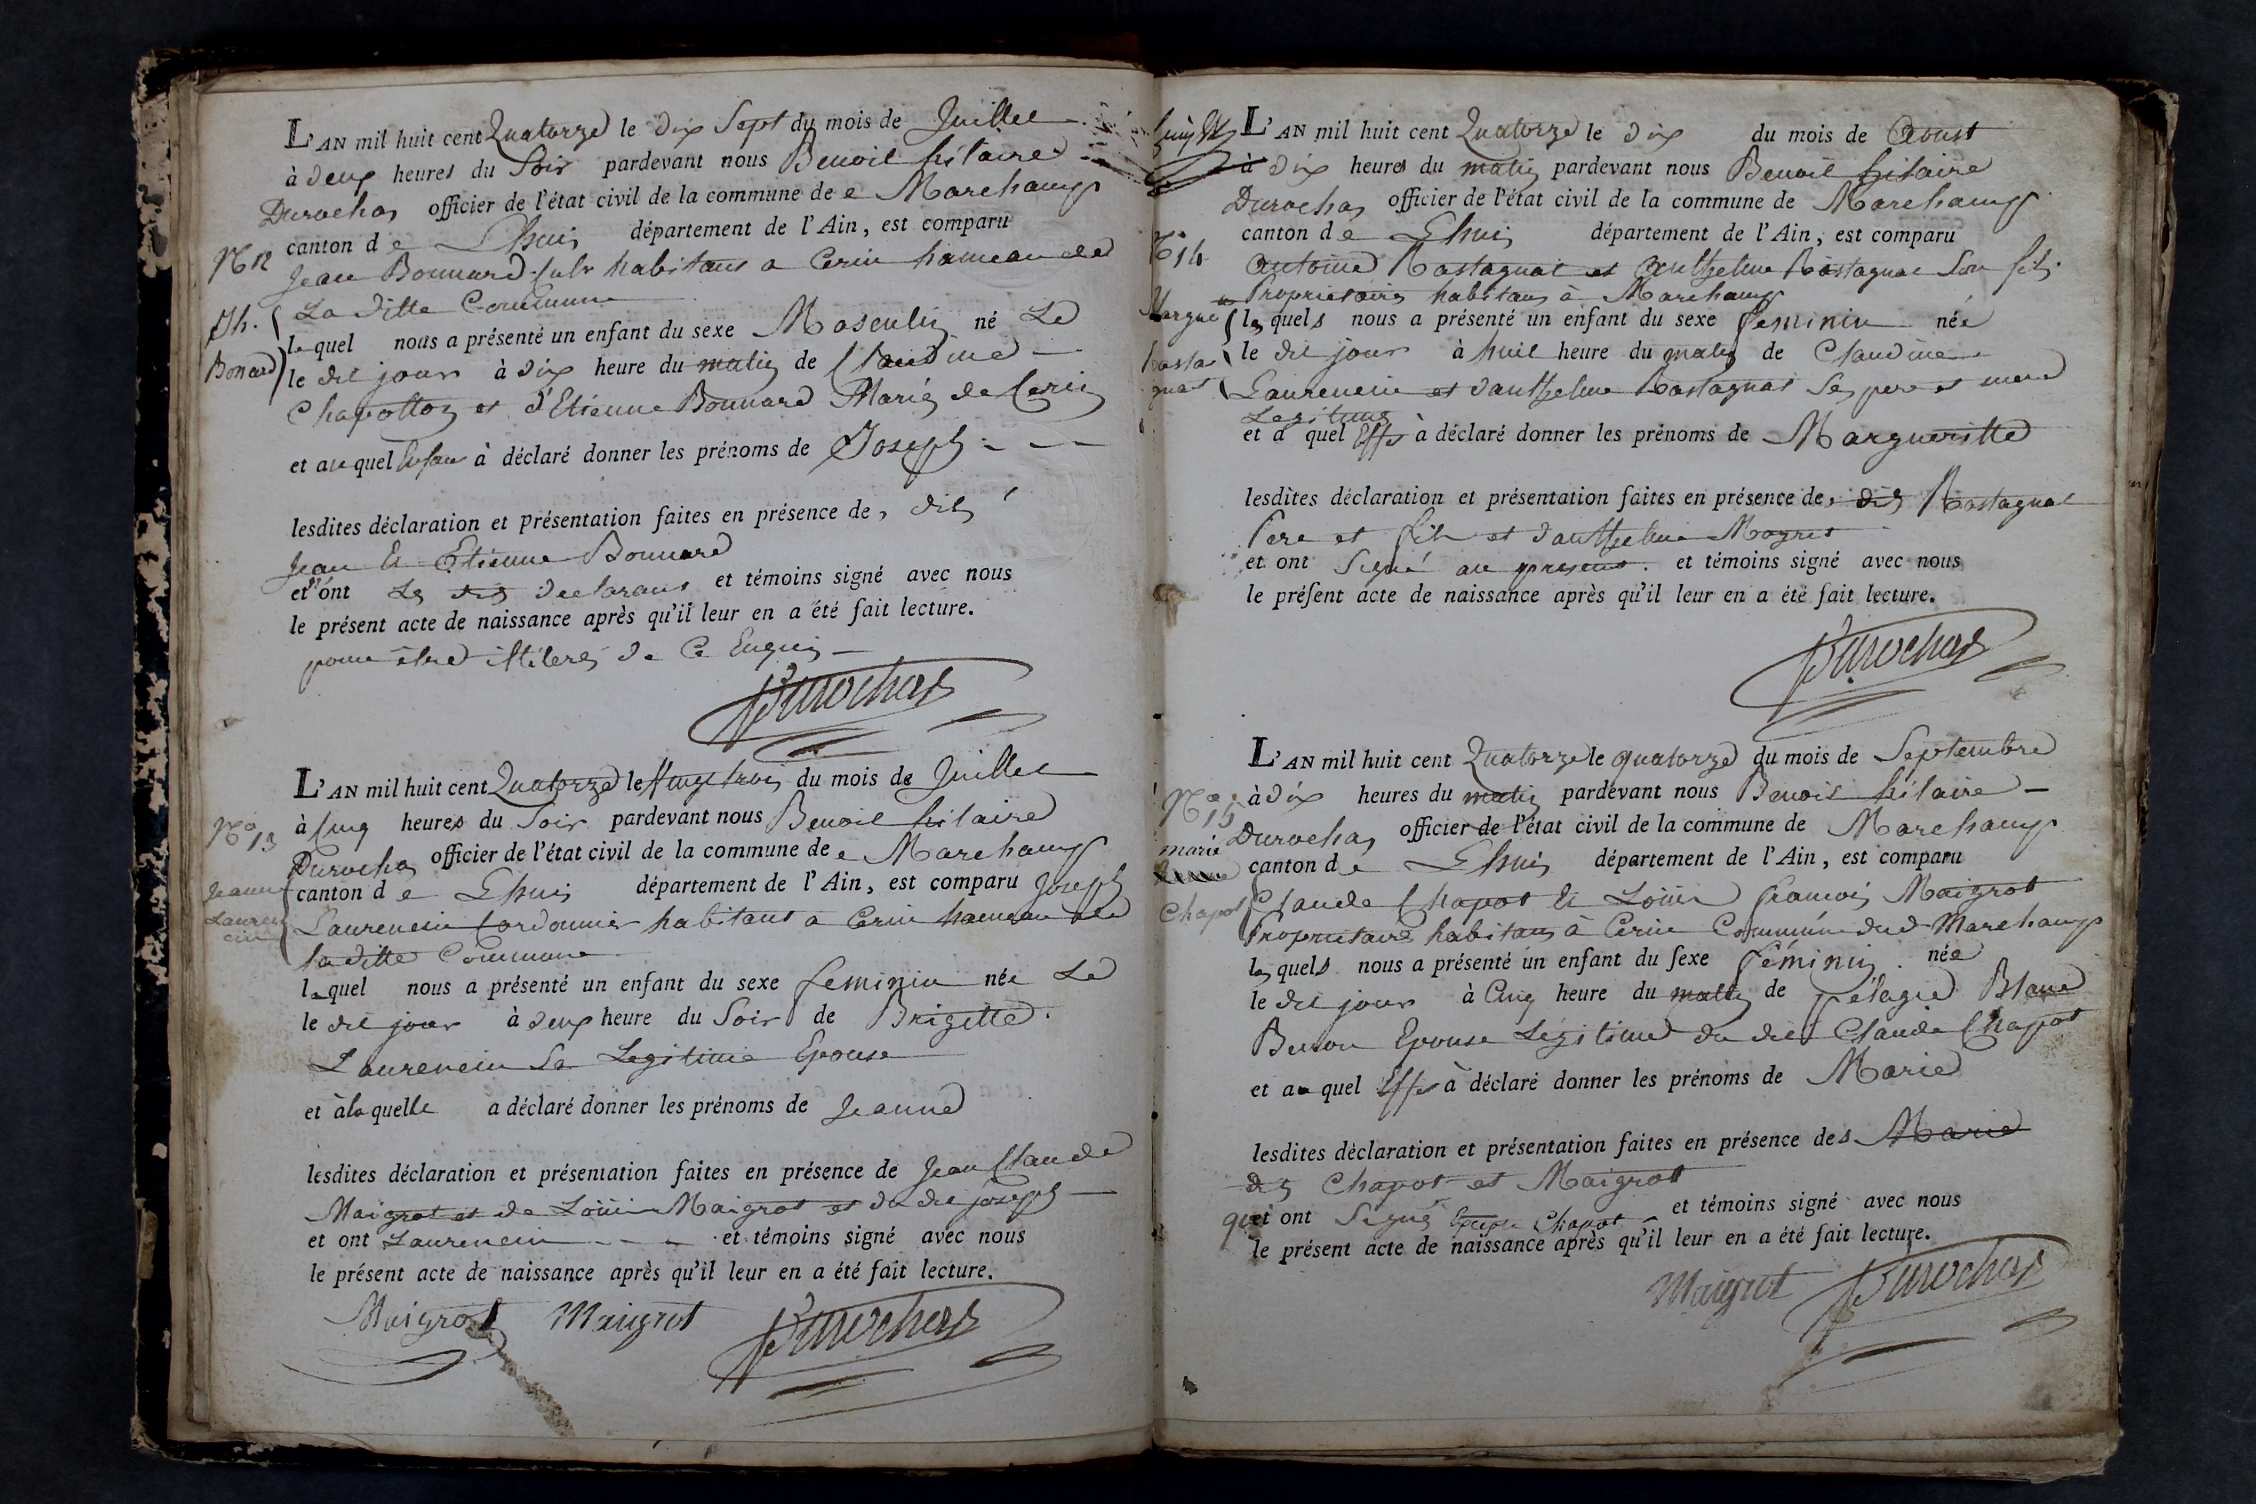 L'AN mil huit cent Quatorze le dix Sept du mois de Juillet
à deux heures du Soir pardevant nous Benoit hilaire
Durochas officier de l'état civil de la commune de Marchamp
canton de Lhuis département de l'Ain, est comparu
N° 12
Jean Bonnard habitant a Cerin hameau de
La ditte Commune
Jh. Bonard
lequel nous a présenté un enfant du sexe Masculin né Le
le dit jour à dix heure du matin de Claudine
Chapottoz et d'Etienne Bonnard Mariés de Cerin
et auquel Enfant à déclaré donner les prénoms de Joseph
lesdites déclaration et présentation faites en présence de, dits
Jean et Etienne Bonnard
et n'ont Les dits declarans et témoins signé avec nous
le présent acte de naissance après qu'il leur en a été fait lecture.
pour être illiterés de ce Enquis
Durochas
L'AN mil huit cent Quatorze le Vingt trois du mois de Juillet
N° 13
à Cinq heures du Soir pardevant nous Benoit hilaire
Durochas officier de l'état civil de la commune de Marchamp
Jeanne Laurencin
canton de Lhuis département de l'Ain, est comparu Joseph
Laurencin Cordonnier habitant a Cerin hameau de
la ditte Commune
lequel nous a présenté un enfant du sexe feminin née Le
le dit jour à deux heure du Soir de Brigitte
Laurencin Sa Legitime Epouse
et à laquelle a déclaré donner les prénoms de Jeanne
lesdites déclaration et présentation faites en présence de Jean Claude
Maigrot et de Louis Maigrot et du dit joseph
et ont Laurencin et témoins signé avec nous
le présent acte de naissance après qu'il leur en a été fait lecture.
Maigrot Maigrot Durochas
L'AN mil huit cent Quatorze le dix du mois de Aoust
à dix heures du matin pardevant nous Benoit hilaire
Durochas officier de l'état civil de la commune de Marchamp
N° 14
canton de Lhuis département de l'Ain, est comparu
Antoine Rostagnat et Anthelme Rostagnat Son fils
Proprietaires habitans à Marchamp
Margue Rostagnat
lesquels nous a présenté un enfant du sexe feminin née
le dit jour à huit heure du matin de Claudine
Laurencin et d'anthelme Rostagnat Ses pere et mere
Legitimes
et a quel Effet à déclaré donner les prénoms de Margueritte
lesdites déclaration et présentation faites en présence de, dits Rostagnat
Pere et fils et d'anthelme Mogret
et ont Signé au present et témoins signé avec nous
le présent acte de naissance après qu'il leur en a été fait lecture.
Durochas
L'AN mil huit cent Quatorze le quatorze du mois de Septembre
N° 15
à dix heures du matin pardevant nous Benoit hilaire
Durochas officier de l'état civil de la commune de Marchamp
marie
canton de Lhuis département de l'Ain, est comparu
Chapot
Claude Chapot et Louis francois Maigrot
Proprietaires habitans à Cerin Commune de Marchamp
lesquels nous a présenté un enfant du sexe féminin née
le dit jour à Cinq heure du matin de pélagie Blanc
Buson Epouse Légitime du dit Claude Chapot
et au quel Effet à déclaré donner les prénoms de Marie
lesdites déclaration et présentation faites en présence des Marie
dits Chapot et Maigrot
qui ont Signé Excepté Chapot et témoins signé avec nous
le présent acte de naissance après qu'il leur en a été fait lecture.
Maigrot Durochas